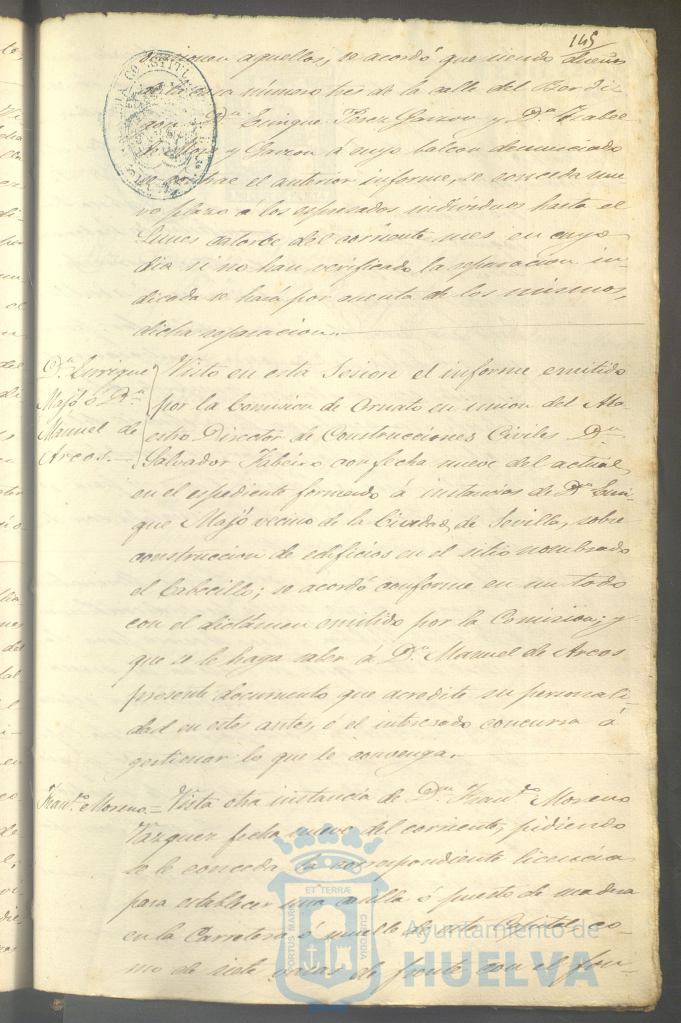 145
aquellos, se acordó que siendo dueños
número tres de la calle del
Dn. Enrique Perez Garzon y Da. Isabel
y Garzon á cuyo balcon denunciado
se contrae el anterior informe, se conceda nue
vo plazo á los espresados individuos hasta el
Lunes catorce del corriente mes en cuyo
dia si no han verificado la reparacion in-
dicada se hará por cuenta de los mismos,
dicha reparacion.
Dn. Enrique
Majó ó Dn.
Manuel de
Arcos.=
Visto en esta Sesion el informe emitido
por la Comision de Ornato en union del Ma
estro Director de Construcciones Civiles Dn.
Salvador con fecha nueve del actual,
en el espediente formado á instancias de Dn. Enri
que Majó vecino de la Ciudad de Sevilla, sobre
construccion de edificios en el sitio nombrado
el Cabecillo; se acordó conforme en un todo
con el dictámen emitido por la Comision; y
que se le haga saber á Dn. Manuel de Arcos
presente documento que acredite su personali
dad en estos antes, ó el interesado concurra á
gestionar lo que le convenga.
Franco. Moreno.= Vista otra instancia de Dn. Franco. Moreno
Vazquez fecha nueve del corriente, pidiendo
se le conceda la correspondiente licencia
para establecer una casilla ó puesto de madera
en la Carretera ó muelle de esta Capital co-
mo de siete varas de frente con el fon-
ET TERRÆ
PORTUS MARIS
CUSTODIA
Ayuntamiento de
HUELVA